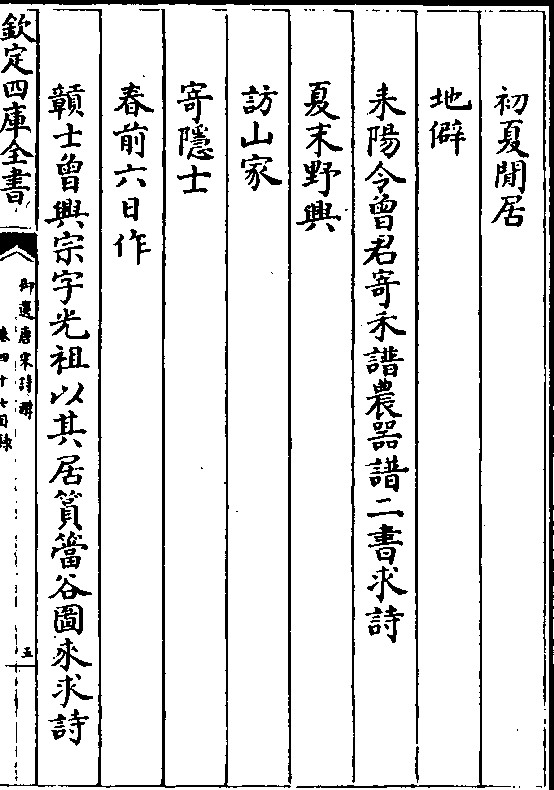 初夏閒居
地僻
耒陽令曾君寄禾譜農器譜二書求詩
夏末野興
訪山家
寄隱士
春前六日作
贛士曾興宗字光祖以其居篔簹谷圖來求詩
欽定四庫全書
御選唐宋詩醇
卷四十七目錄
五